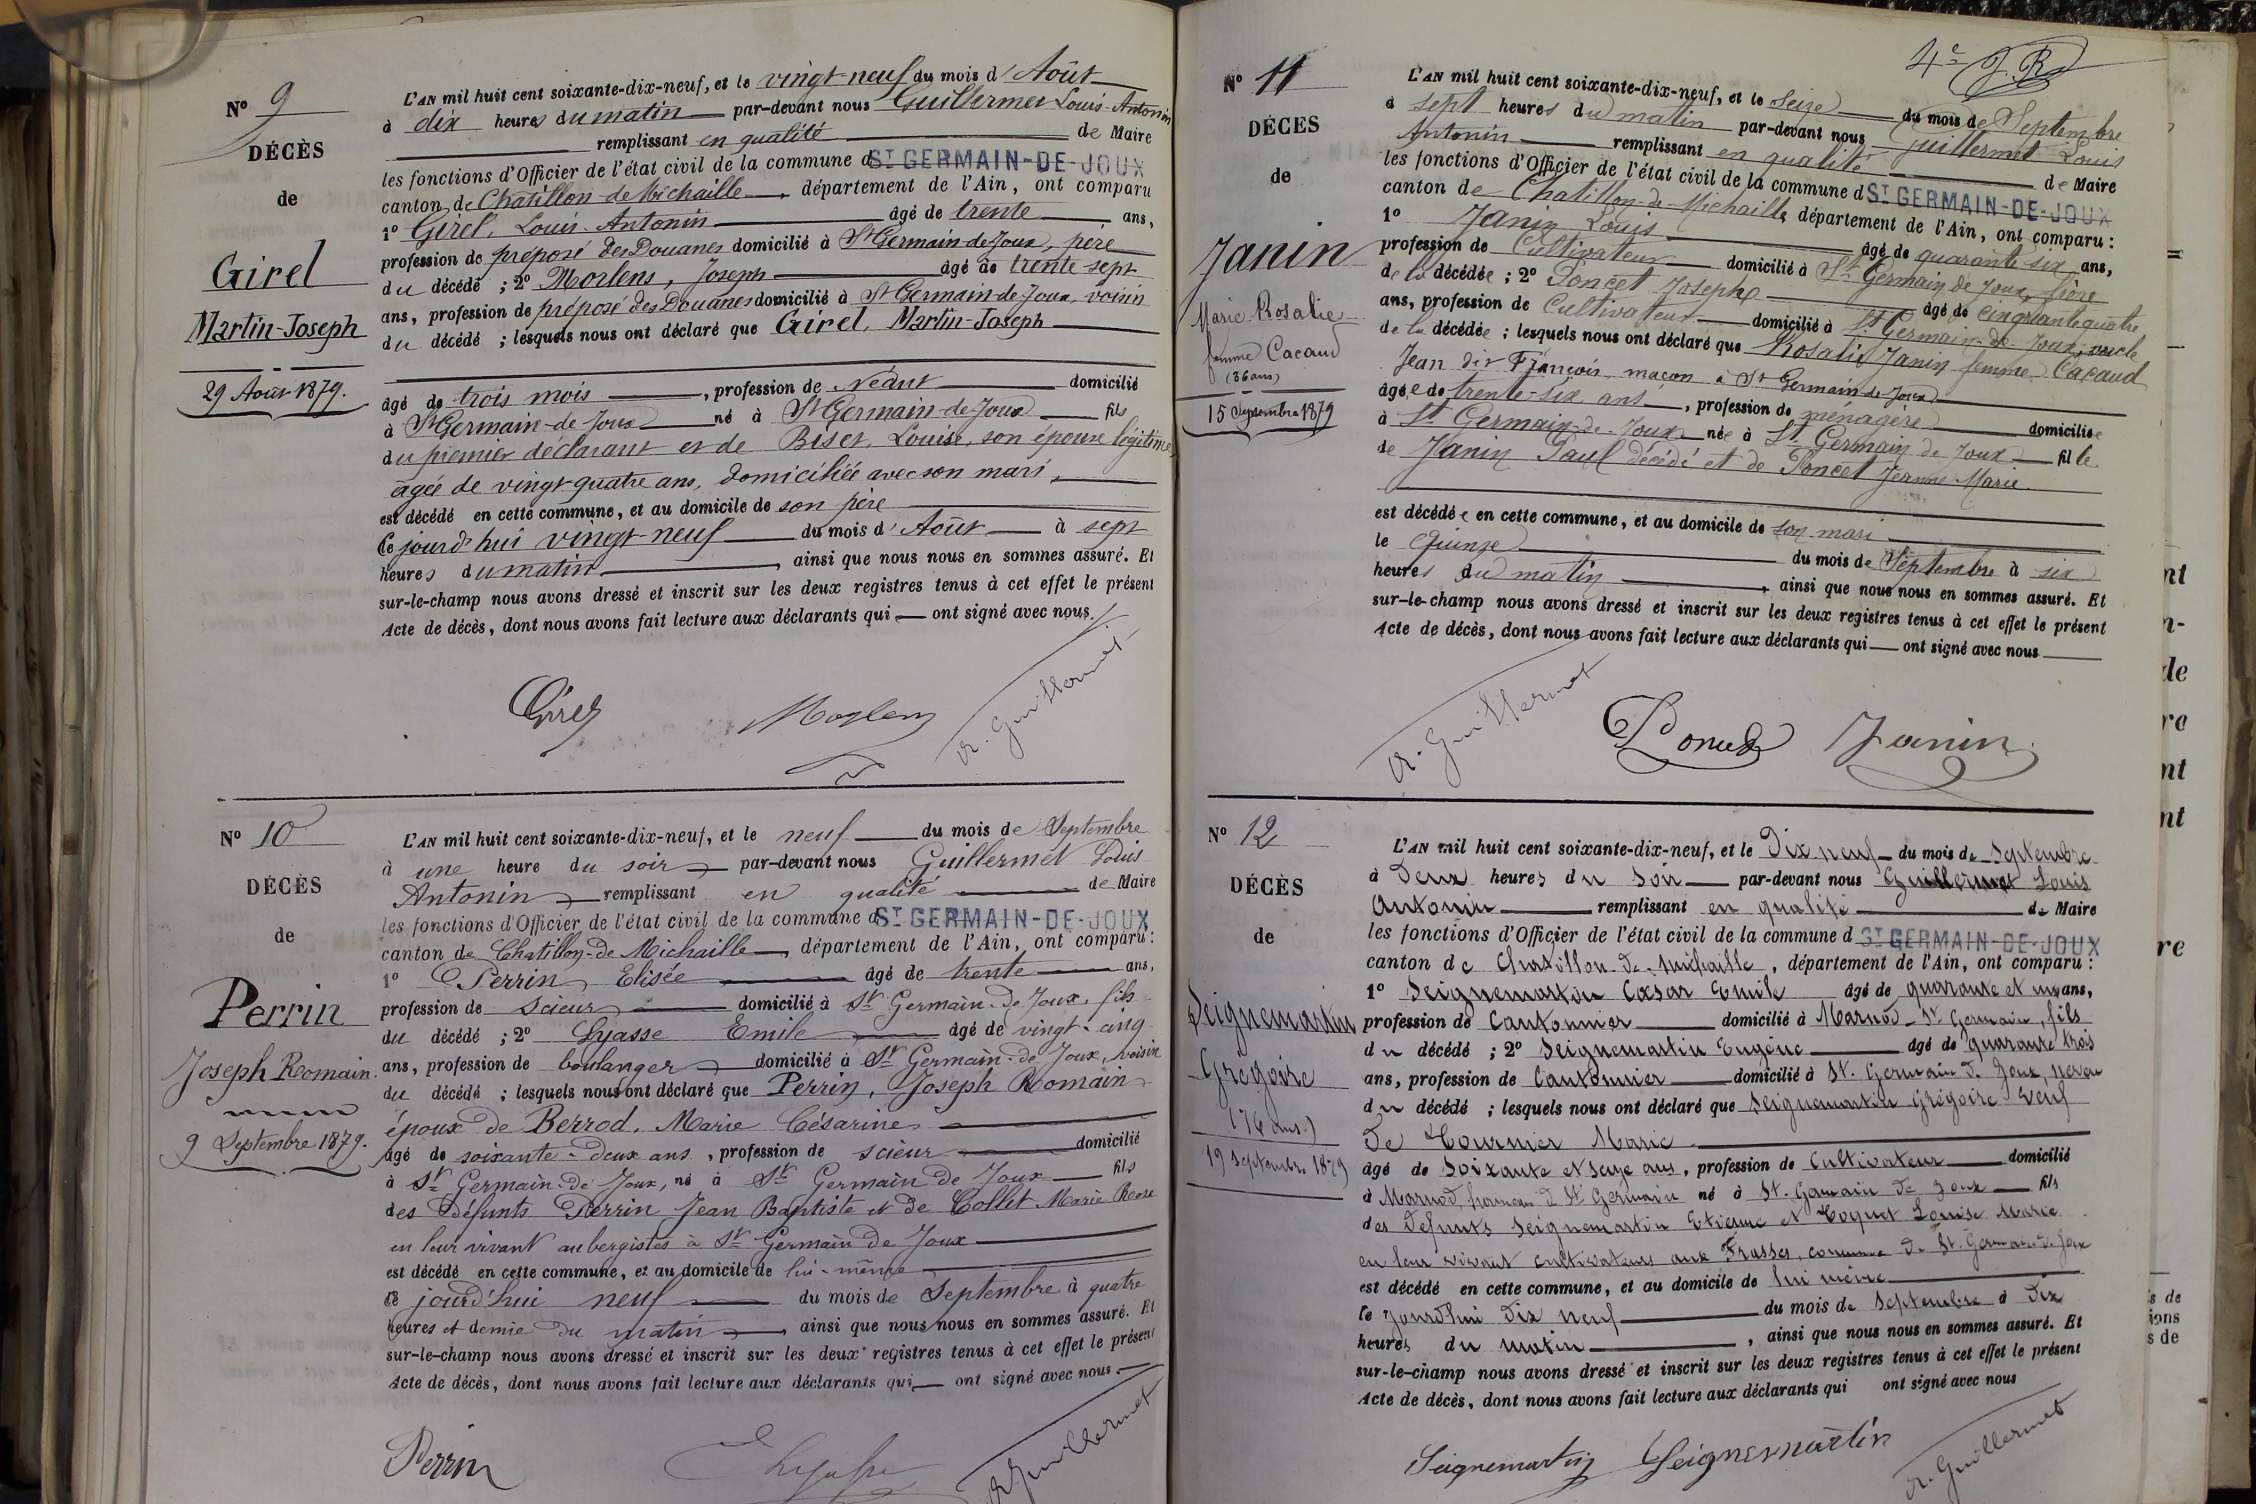 N° 9
DÉCÈS
de
Girel
Martin-Joseph
29 Août 1879.
L'AN mil huit cent soixante-dix-neuf, et le vingt-neuf du mois d'Août
à dix heures du matin par-devant nous Guillermet Louis-Antonin
remplissant en qualité de Maire
les fonctions d'Officier de l'état civil de la commune d ST GERMAIN-DE-JOUX
canton de Chatillon-de-Michaille, département de l'Ain, ont comparu
1° Girel, Louis-Antonin âgé de trente ans,
profession de préposé des Douanes domicilié à St Germain-de-Joux, père
du décédé ; 2° Morlens, Joseph âgé de trente sept
ans, profession de préposé des Douanes domicilié à St Germain-de-Joux, voisin
du décédé ; lesquels nous ont déclaré que Girel, Martin-Joseph
âgé de trois mois, profession de Néant domicilié
à St Germain-de-Joux né à St Germain-de-Joux fils
du premier déclarant et de Biset, Louise, son épouse légitime,
agée de vingt-quatre ans, domiciliée avec son mari,
est décédé en cette commune, et au domicile de son père
Ce jourd'hui vingt-neuf du mois d'Août à sept
heures du matin, ainsi que nous nous en sommes assuré. Et
sur-le-champ nous avons dressé et inscrit sur les deux registres tenus à cet effet le présent
Acte de décès, dont nous avons fait lecture aux déclarants qui ont signé avec nous.
Girel Morlens A. Guillermet
N° 10
DÉCÈS
de
Perrin
Joseph Romain.
9 Septembre 1879.
L'AN mil huit cent soixante-dix-neuf, et le neuf du mois de Septembre
à une heure du soir par-devant nous Guillermet Louis
Antonin remplissant en qualité de Maire
les fonctions d'Officier de l'état civil de la commune d ST GERMAIN-DE-JOUX
canton de Chatillon-de-Michaille, département de l'Ain, ont comparu :
1° Perrin, Elisée âgé de trente ans,
profession de scieur domicilié à St Germain-de-Joux, fils
du décédé ; 2° Lyasse Emile âgé de vingt-cinq
ans, profession de boulanger domicilié à St Germain-de-Joux, voisin
du décédé ; lesquels nous ont déclaré que Perrin, Joseph Romain
époux de Berrod, Marie Césarine
âgé de soixante-deux ans, profession de scieur domicilié
à St Germain-de-Joux, né à St Germain de Joux fils
des défunts Perrin Jean Baptiste et de Collet Marie Rose
en leur vivant aubergistes à St Germain de Joux
est décédé en cette commune, et au domicile de lui-même
ce jourd'hui neuf du mois de Septembre à quatre
heures et demie du matin, ainsi que nous nous en sommes assuré. Et
sur-le-champ nous avons dressé et inscrit sur les deux registres tenus à cet effet le présent
Acte de décès, dont nous avons fait lecture aux déclarants qui ont signé avec nous.
Perrin Lyasse A. Guillermet
4e J. R
N° 11
DÉCÈS
de
Janin
Marie-Rosalie
femme Cacaud
(36 ans)
15 Septembre 1879
L'AN mil huit cent soixante-dix-neuf, et le Seize du mois de Septembre
à sept heures du matin par-devant nous Guillermet Louis
Antonin remplissant en qualité de Maire
les fonctions d'Officier de l'état civil de la commune d ST GERMAIN-DE-JOUX
canton de Chatillon-de-Michaille, département de l'Ain, ont comparu :
1° Janin Louis âgé de quarante six ans,
profession de Cultivateur domicilié à St Germain de Joux, frère
de la décédée ; 2° Poncet Joseph âgé de cinquante quatre
ans, profession de Cultivateur domicilié à St Germain-de-Joux, oncle
de la décédée ; lesquels nous ont déclaré que Rosalie Janin femme Cacaud
Jean dit François maçon à St Germain-de-Joux
âgée de trente-six ans, profession de ménagère domiciliée
à St Germain-de-Joux née à St Germain de Joux fille
de Janin Paul décédé et de Poncet Jeanne Marie.
est décédée en cette commune, et au domicile de son mari
le Quinze du mois de Septembre à six
heures du matin, ainsi que nous nous en sommes assuré. Et
sur-le-champ nous avons dressé et inscrit sur les deux registres tenus à cet effet le présent
Acte de décès, dont nous avons fait lecture aux déclarants qui ont signé avec nous
A. Guillermet Poncet Janin
N° 12
DÉCÈS
de
Seignemartin
Grégoire
(76 ans.)
19 Septembre 1879
L'AN mil huit cent soixante-dix-neuf, et le Dix neuf du mois de Septembre
à Deux heures du Soir par-devant nous Guillermet Louis
Antonin remplissant en qualité de Maire
les fonctions d'Officier de l'état civil de la commune d ST GERMAIN-DE-JOUX
canton de Chatillon-de-Michaille, département de l'Ain, ont comparu :
1° Seignemartin Cæsar Emile âgé de quarante et un ans,
profession de Cantonnier domicilié à Marnod-St Germain, fils
du décédé ; 2° Seignemartin Eugène âgé de quarante trois
ans, profession de Cantonnier domicilié à St. Germain de Joux, neveu
du décédé ; lesquels nous ont déclaré que Seignemartin Grégoire Veuf
De Tournier Marie
âgé de Soixante et Seize ans, profession de Cultivateur domicilié
à Marnod, hameau de St Germain né à St. Germain de Joux fils
des Defunts Seignemartin Etienne et Coquet Louise Marie
en leur vivant cultivateurs aux Frasses, commune de St. Germain de Joux
est décédé en cette commune, et au domicile de lui même
le jourd'hui Dix neuf du mois de Septembre à Dix
heures du matin, ainsi que nous nous en sommes assuré. Et
sur-le-champ nous avons dressé et inscrit sur les deux registres tenus à cet effet le présent
Acte de décès, dont nous avons fait lecture aux déclarants qui ont signé avec nous
Seignemartin Seignemartin A. Guillermet